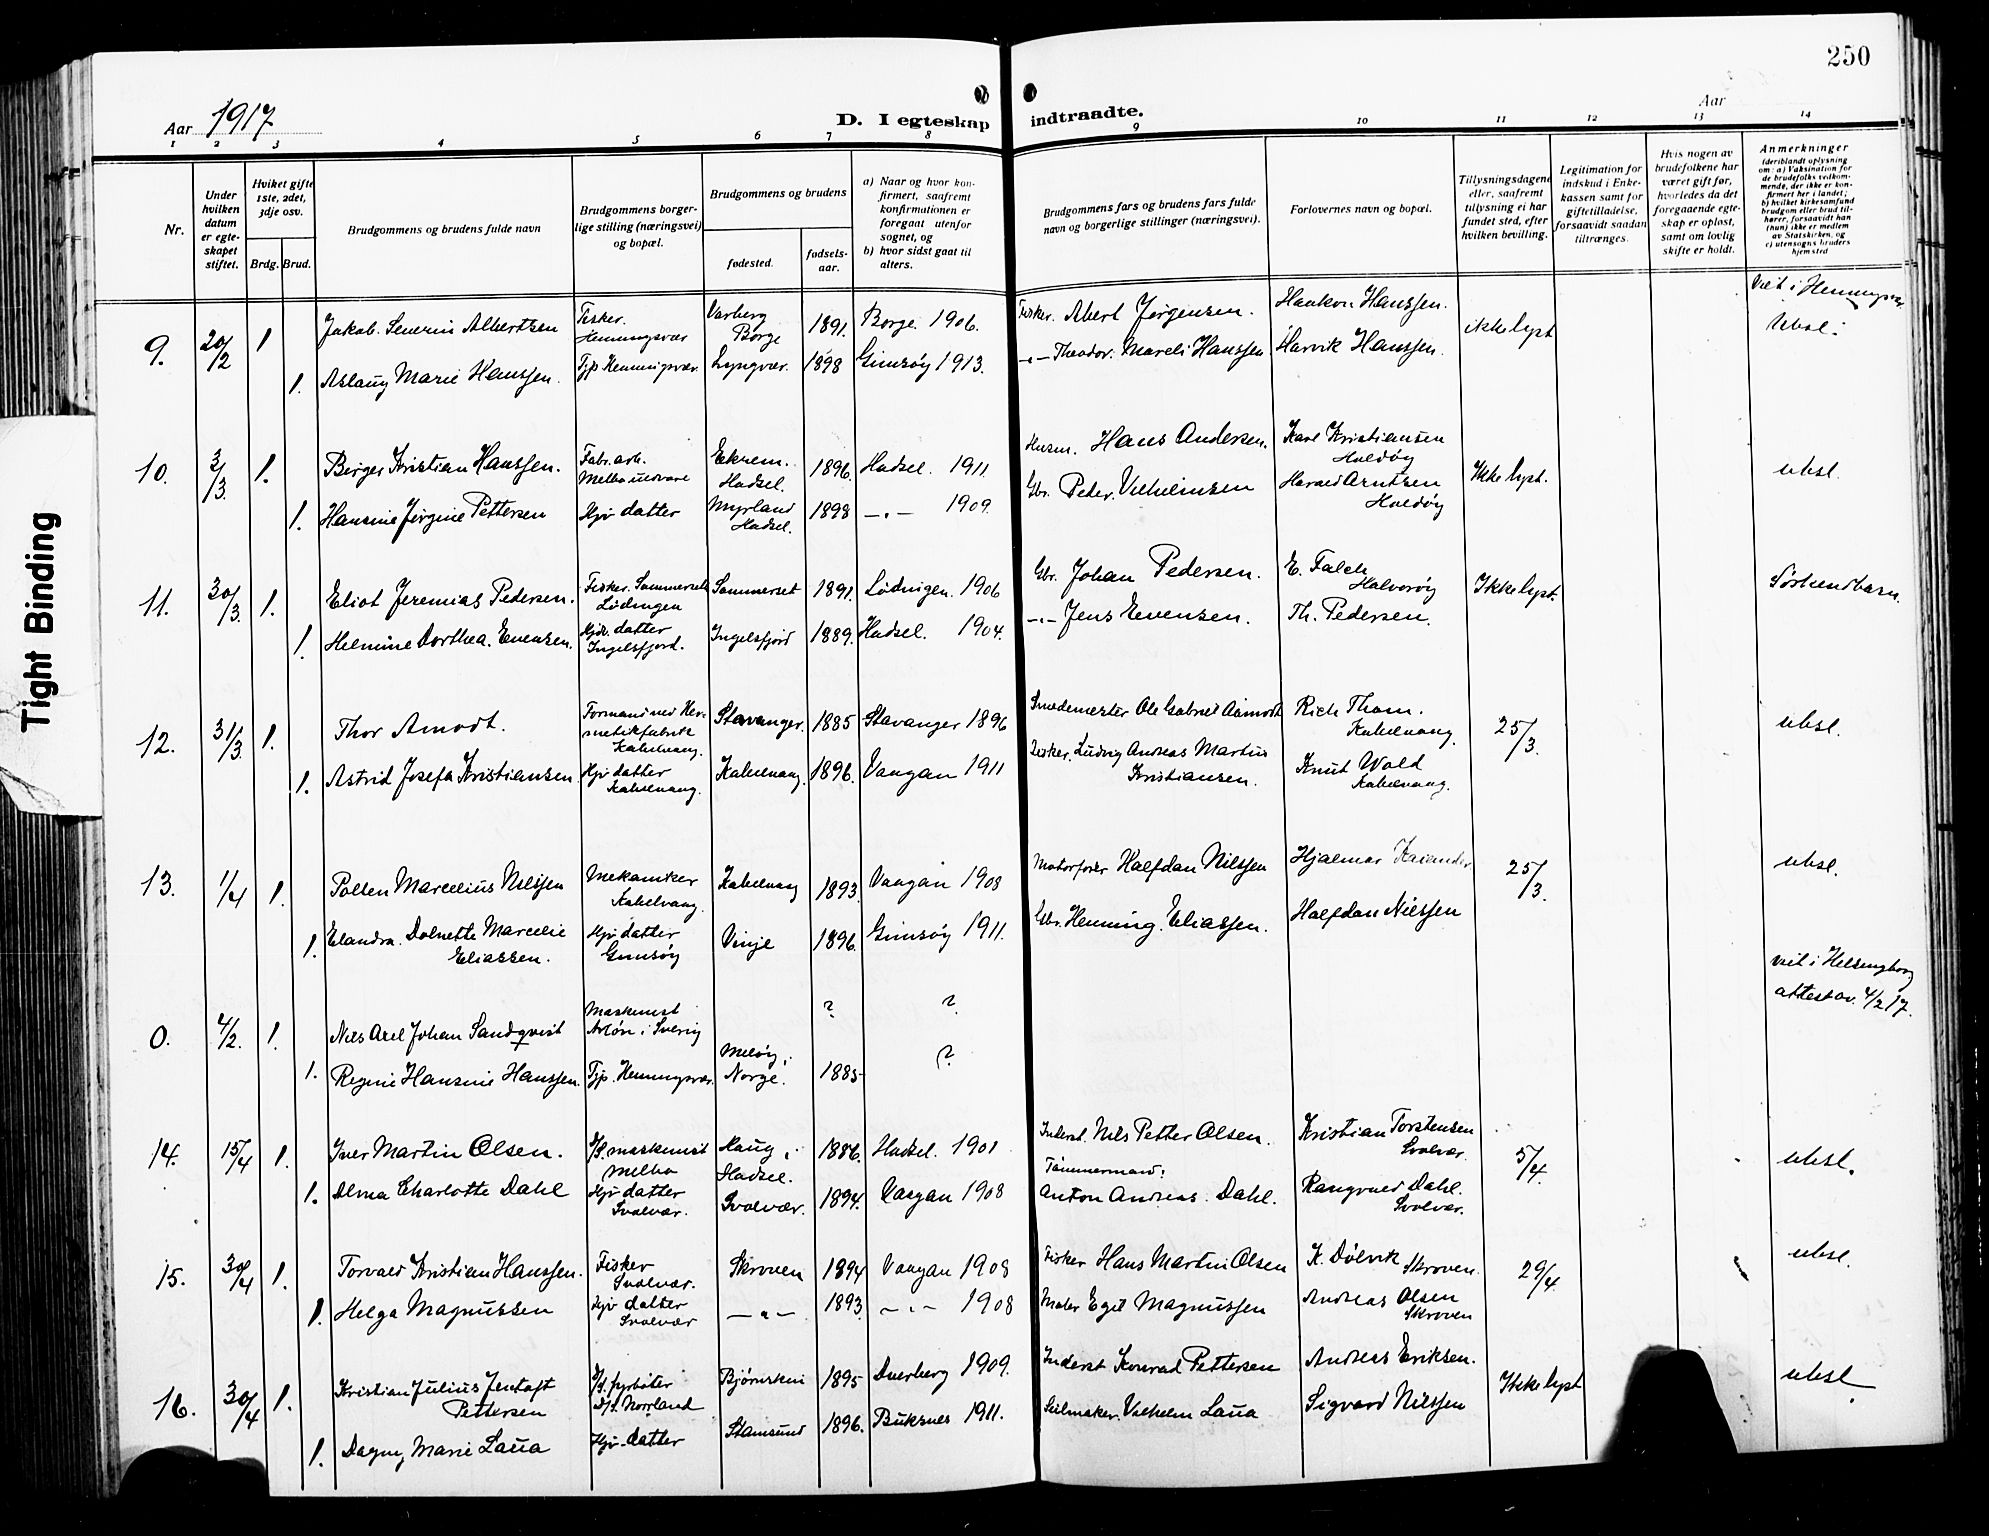 250
Aar 1917
D. I egteskap indtraadte.
Aar
1 2 3 4 5 6 7 8 9 10 11 12 13 14
Nr.
Under hvilken datum er egteskapet stiftet.
Hvilket gifte 1ste, 2det, 3dje osv.
Brdg. Brud.
Brudgommens og brudens fulde navn
Brudgommens borgerlige stilling (næringsvei) og bopæl.
Brudgommens og brudens
fødested.
fødselsaar.
a) Naar og hvor konfirmert, saafremt konfirmationen er foregaat utenfor sognet, og
b) hvor sidst gaat til alters.
Brudgommens fars og brudens fars fulde navn og borgerlige stillinger (næringsvei).
Forlovernes navn og bopæl.
Tillysningsdagene eller, saafremt tillysning ei har fundet sted, efter hvilken bevilling.
Legitimation for indskud i Enkekassen samt for giftetilladelse, forsaavidt saadan tiltrænges.
Hvis nogen av brudefolkene har været gift før, hvorledes da det foregaaende egteskap er opløst, samt om lovlig skifte er holdt.
Anmerkninger (deriblandt oplysning om: a) Vaksination for de brudefolks vedkommende, der ikke er konfirmert her i landet; b) hvilket kirkesamfund brudgom eller brud tilhører, forsaavidt han (hun) ikke er medlem av Statskirken, og c) utensogns bruders hjemsted
9. 20/2 1 Jakob Severin Albertsen Fisker. Henningsvær Varberg Borge 1891. Borge 1906. Fisker. Abert Jørgensen. Haakon Hanssen. ikke lyst Viet i Henningsvær ubsl.
1. Aslaug Marie Hanssen. Tjp Henningsvær. Lyngvær. 1898 Gimsøy 1913. -"- Theodor Mareli Hanssen Harvik Hanssen.
10. 3/3 1. Birger Kristian Hanssen. Fabr. arb. Melbo Ekrem. Hadsel. 1896. Hadsel. 1911 Husm. Hans Andersen. Karl Kristiansen Holdøy Ikke lyst. ubsl.
1. Hansine Jørgine Pettersen Hjv datter Myrland Hadsel. 1898 -"- 1909. Gbr. Peder Vilhelmsen Harald Arntzen Holdøy
11. 30/3 1. Eliot Jeremias Pedersen. Fisker. Sommerset Lødingen Sommerset 1891. Lødingen. 1906 Gbr. Johan Pedersen. E. Falch Halvorøy Ikke lyst.
1. Helmine Dorthea. Evensen. Hjv. datter Ingelsfjord. Ingelsfjord 1889. Hadsel. 1904. -"- Jens Evensen. Th. Pedersen.
12. 31/3 1. Thor Amodt. Formand ved Hermetikfabrik Kabelvaag. Stavanger. 1885 Stavanger 1896 Smedemester Ole Gabriel Aamodt Rich Thom. Kabelvaag. 25/3. ubsl.
1. Astrid Josefa Kristiansen Hjv datter Kabelvaag. Kabelvaag. 1896. Vaagan 1911 Fisker. Ludvig Andreas Martin Kristiansen. Knut Wold Kabelvaag.
13. 1/4 1. Polten Marcelius Nilssen Mekaniker Kabelvaag. Kabelvaag 1893. Vaagan 1908 Motorfører Halfdan Nilssen Hjalmar 25/3. ubsl.
1. Elandra. Dolnette Marcelie Eliassen. Hjv datter Gimsøy Vinje 1896. Gimsøy 1911. Gbr. Henning. Eliassen. Halfdan Nielssen
0. 4/2. 1. Nils Axel Johan Sandqvist Maskinist Arlöv i Sverig ? ? viet i Helsingborg attest av 4/2 17.
1. Regine Hansine Hanssen. Tjp. Henningsvær. Meløy, Norge. 1885 ?
14. 15/4 1. Iver Martin Olsen. D/S. maskinist Melbo Haug, Hadsel. 1886. Hadsel. 1901 Inderst. Nils Petter Olsen. Kristian Torstensen Svolvær. 5/4. ubsl.
1. Alma Charlotte Dahl Hjv datter Svolvær. Svolvær. 1894. Vaagan 1908 Tømmermand. Anton Andreas. Dahl. Rangvald Dahl. Svolvær.
15. 30/4 1. Torvald Kristian Hanssen. Fisker Svolvær. Skroven 1894 Vaagan 1908 Fisker Hans Martin Olsen K. Dølvik Skroven. 29/4. ubsl.
1. Helga Magnussen Hjv datter Svolvær -"- 1893. -"- 1908 Maler Egil Magnussen Andreas Olsen Skroven
16. 30/4 1. Kristian Julius Jentoft Pettersen D/S. fyrbøter D/S. Norrland Bjørnskin 1895 Dverberg 1909. Inderst Konrad Pettersen Andreas Eriksen. Ikke lyst ubsl
1. Dagny Marie Laua Hjv. datter Stamsund 1896. Buksnes 1911. Seilmaker. Vilhelm Laua Sigvard Nilssen
Tight Binding